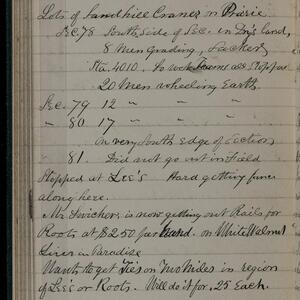 Lots of Sandhill Cranes on Prairie
Sec. 78 South Side of Sec. in Dry land,
8 Men Grading, Tucker
Sta. 4010. So work Teams as Stop pas
20 Men wheeling Earth
Sec. 79 12 " " "
" 80 17 " " "
on very South edge of Section
" 81. Did not go out in Field
Stopped at Lee's Hard getting fence
along here.
Mr. is now getting out Rails for
Roots at $2.50 per hand. on White Walnut
Lives in Paradise
Wants to get Ties on Two Miles in region
of Lee's or Roots. Will do it for .25 Each.